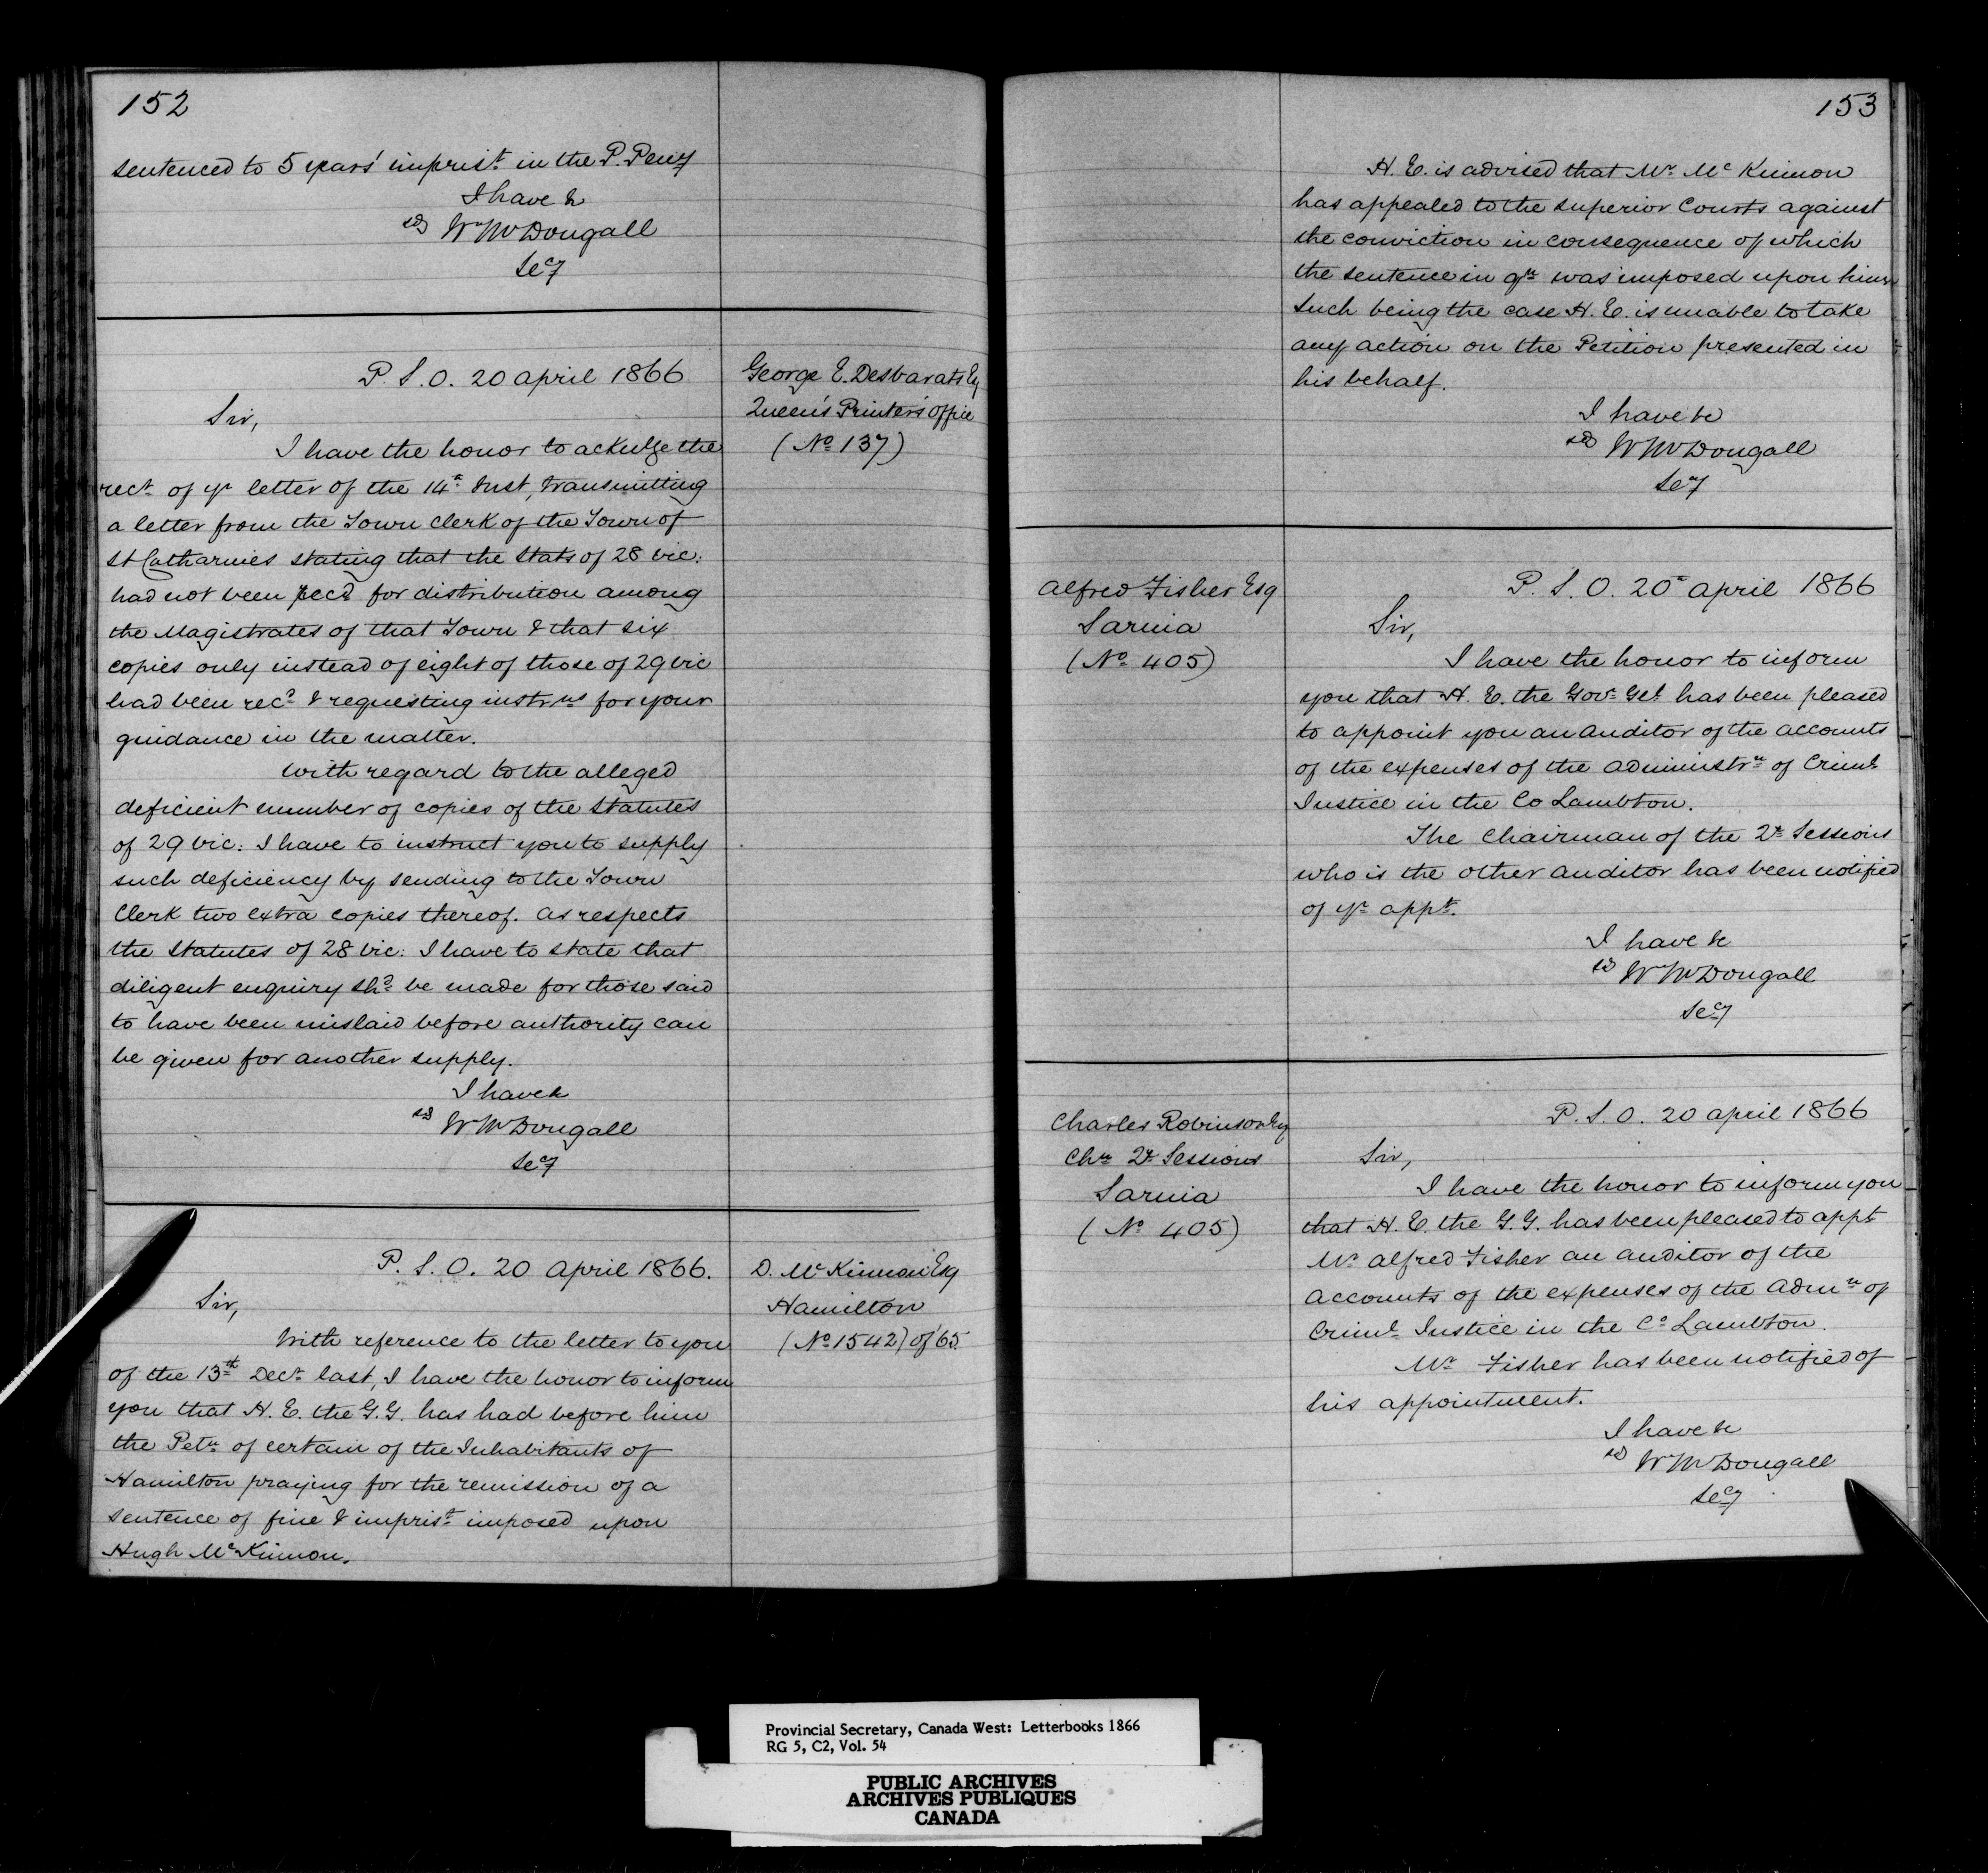 152
sentenced to 5 years' imprist. in the P. Peny
I have &c
sd W McDougall
Secy
P. S. O. 20 April 1866
George E. Desbarats Esq
Queen's Printer's Office
(No 137)
Sir,
I have the honor to acknlge the
rect. of yr letter of the 14th Inst, transmitting
a letter from the Town Clerk of the Town of
St Catharines stating that the Stats of 28 Vic:
had not been recd for distribution among
the Magistrates of that Town & that six
copies only instead of eight of those of 29 Vic
had been recd & requesting instrns for your
guidance in the matter.
With regard to the alleged
deficient number of copies of the Statutes
of 29 Vic: I have to instruct you to supply
such deficiency by sending to the Town
Clerk two extra copies thereof. As respects
the Statutes of 28 Vic: I have to state that
diligent enquiry shd be made for those said
to have been mislaid before authority can
be given for another supply.
I have &c
sd W McDougall
Secy
P. S. O. 20 April 1866.
D. McKinnon Esq
Hamilton
(No 1542) of '65
Sir,
With reference to the letter to you
of the 13th Decr last, I have the honor to inform
you that H. E. the G.G. has had before him
the Petn of certain of the Inhabitants of
Hamilton praying for the remission of a
sentence of fine & imprist. imposed upon
Hugh McKinnon.
153
H. E. is advised that Mr McKinnon
has appealed to the superior Courts against
the conviction in consequence of which
the sentence in qn was imposed upon him
Such being the case H. E. is unable to take
any action on the Petition presented in
his behalf.
I have &c
sd W McDougall
Secy
Alfred Fisher Esq
Sarnia
(No 405)
P. S. O. 20th April 1866
Sir,
I have the honor to inform
you that H. E. the Govr Gel has been pleased
to appoint you an auditor of the accounts
of the expenses of the administrn of Criml
Justice in the Co Lambton.
The Chairman of the 2r Sessions
who is the other auditor has been notified
of yr appt.
I have &c
sd W McDougall
Secy
Charles Robinson Esq
Chn 2r Sessions
Sarnia
(No 405)
P. S. O. 20 April 1866
Sir,
I have the honor to inform you
that H. E. the G.G. has been pleased to appt
Mr Alfred Fisher an auditor of the
accounts of the expenses of the Admn of
Criml Justice in the Co Lambton.
Mr Fisher has been notified of
his appointment.
I have &c
sd W McDougall
Secy
Provincial Secretary, Canada West: Letterbooks 1866
RG 5, C2, Vol. 54
PUBLIC ARCHIVES
ARCHIVES PUBLIQUES
CANADA